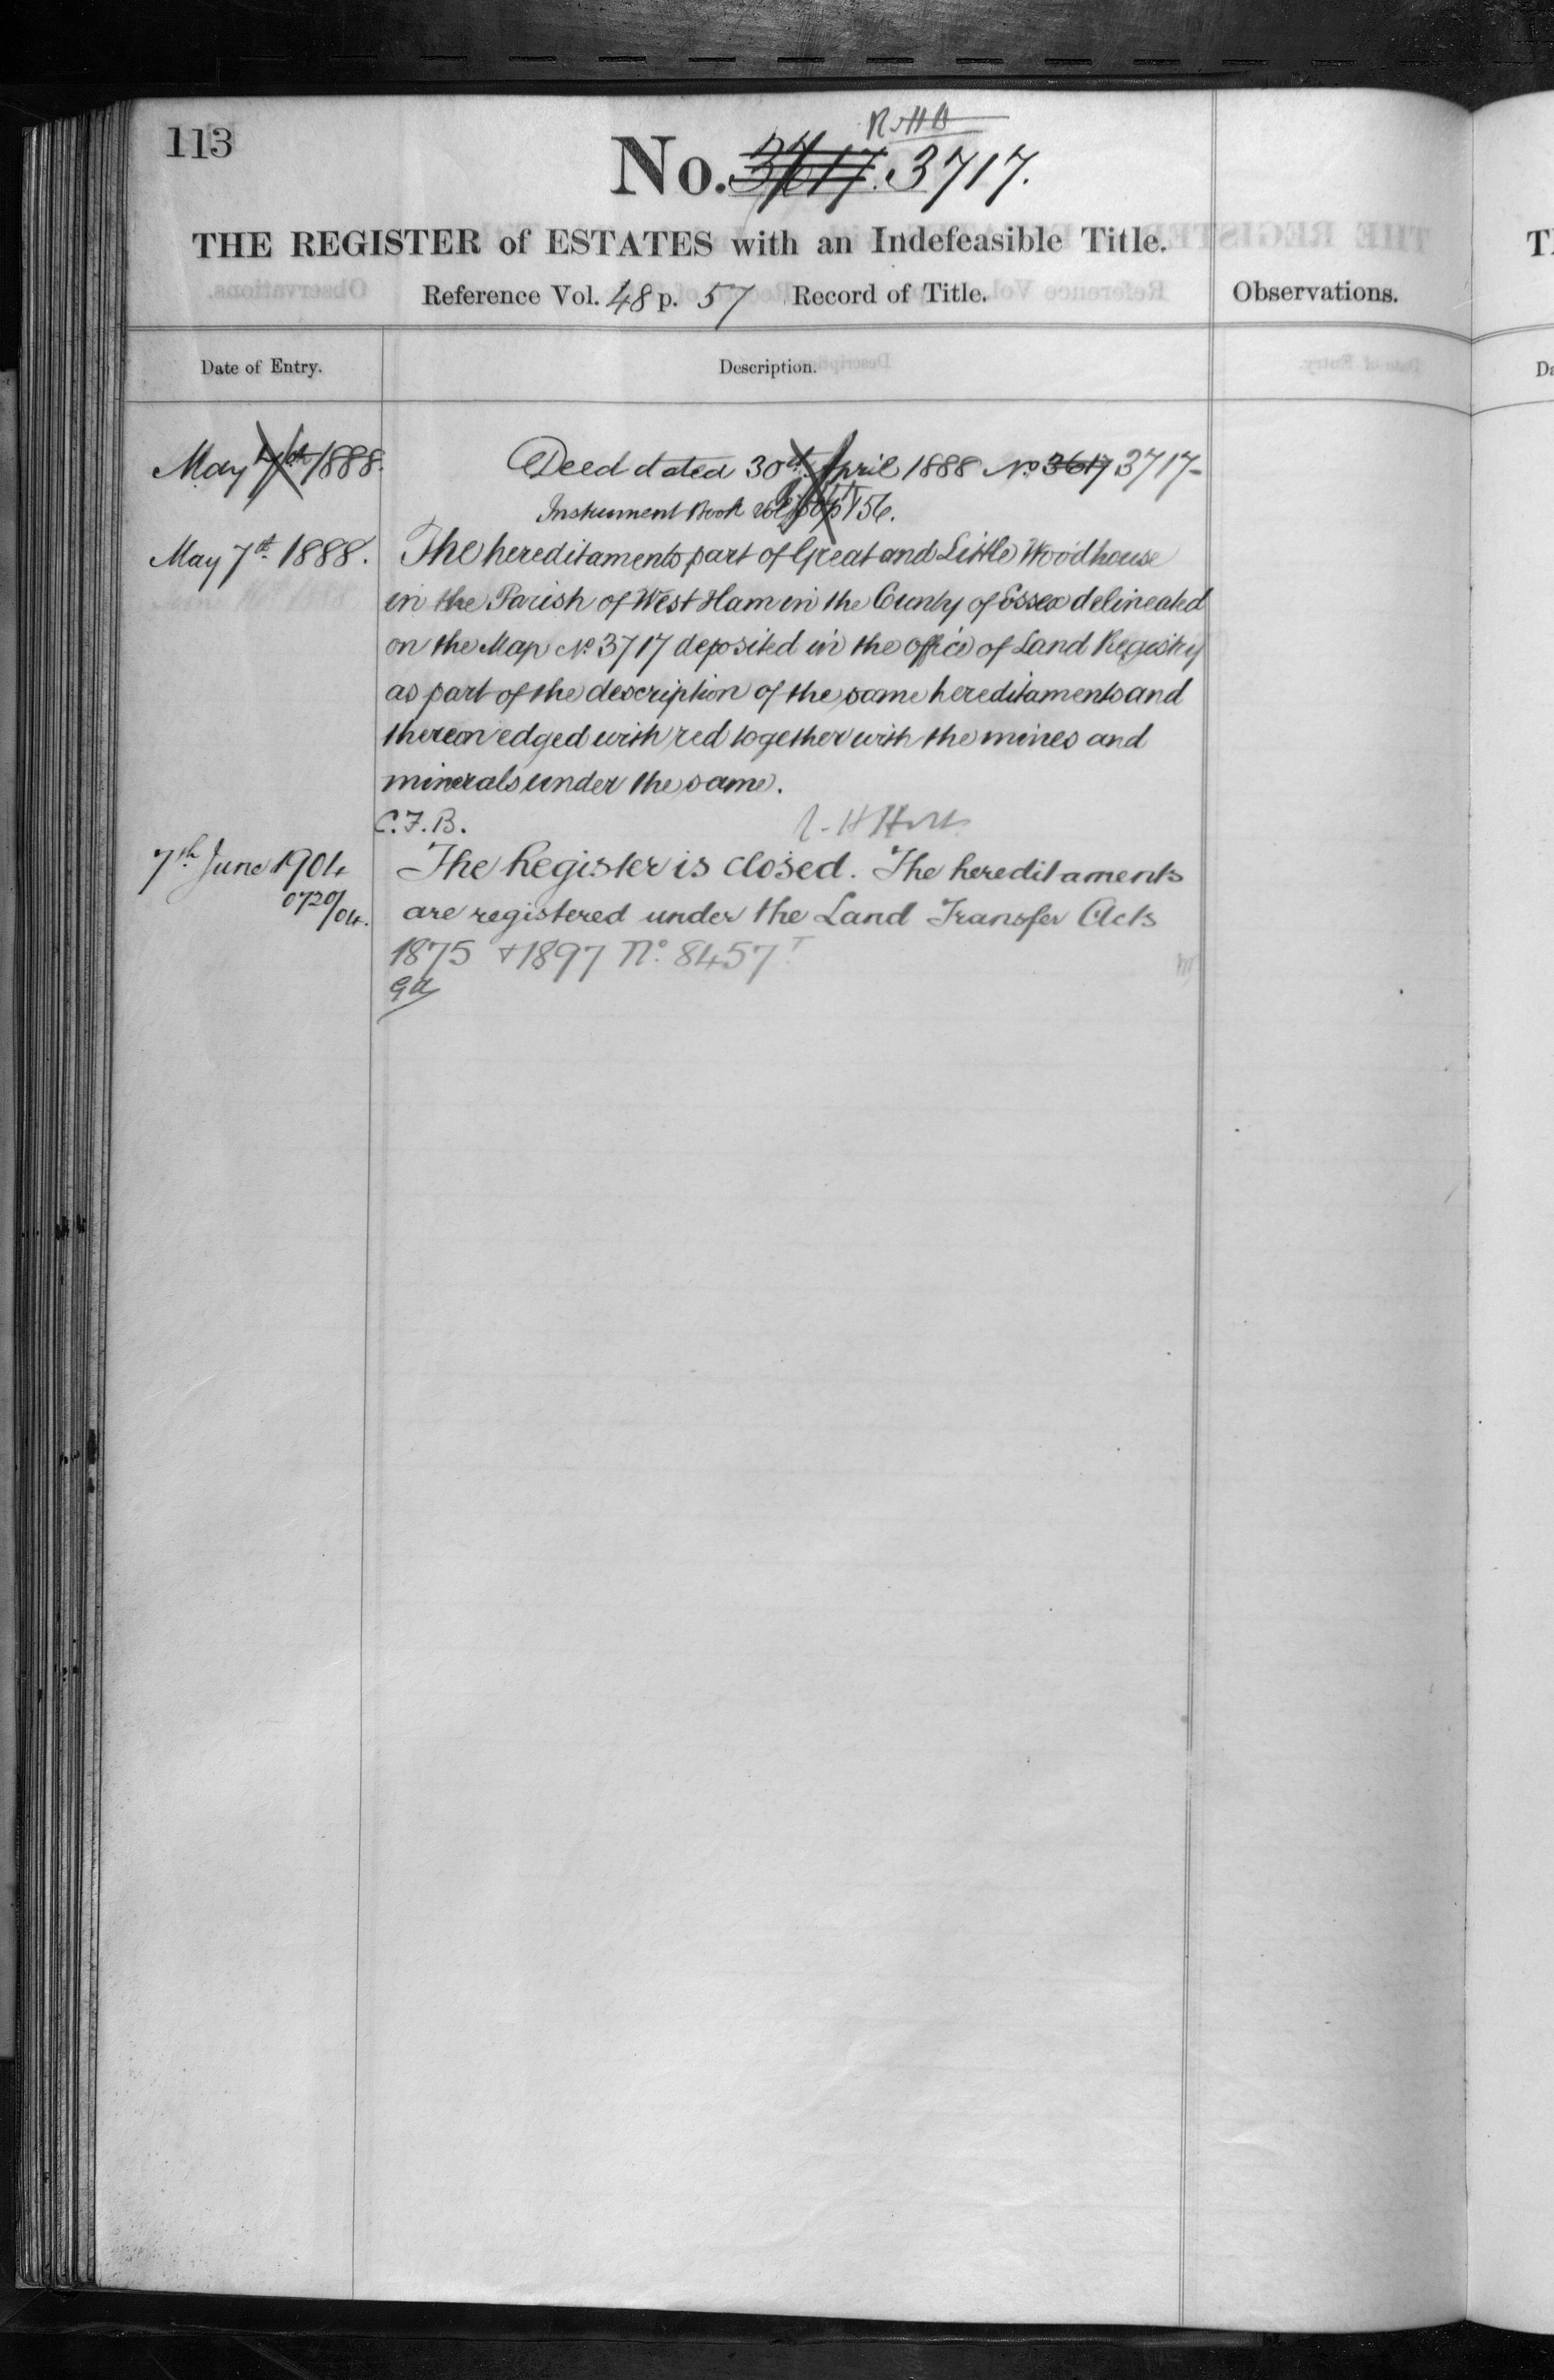 113
No. 3717. 3717.
THE REGISTER of ESTATES with an Indefeasible Title.
Reference Vol. 48 p. 57 Record of Title.
Observations.
Date of Entry.
Description.
May 7th 1888.
Deed dated 30th April 1888 No 3617 3717-
Instrument Book vol p 156.
May 7th 1888.
The hereditaments part of Great and Little Woodhouse
in the Parish of West Ham in the County of Essex delineated
on the Map No 3717 deposited in the office of Land Registry
as part of the description of the same hereditaments and
thereon edged with red together with the mines and
minerals under the same.
C.F.B.
7th June 1904
0720/04.
The Register is closed. The hereditaments
are registered under the Land Transfer Acts
1875 & 1897 No. 8457